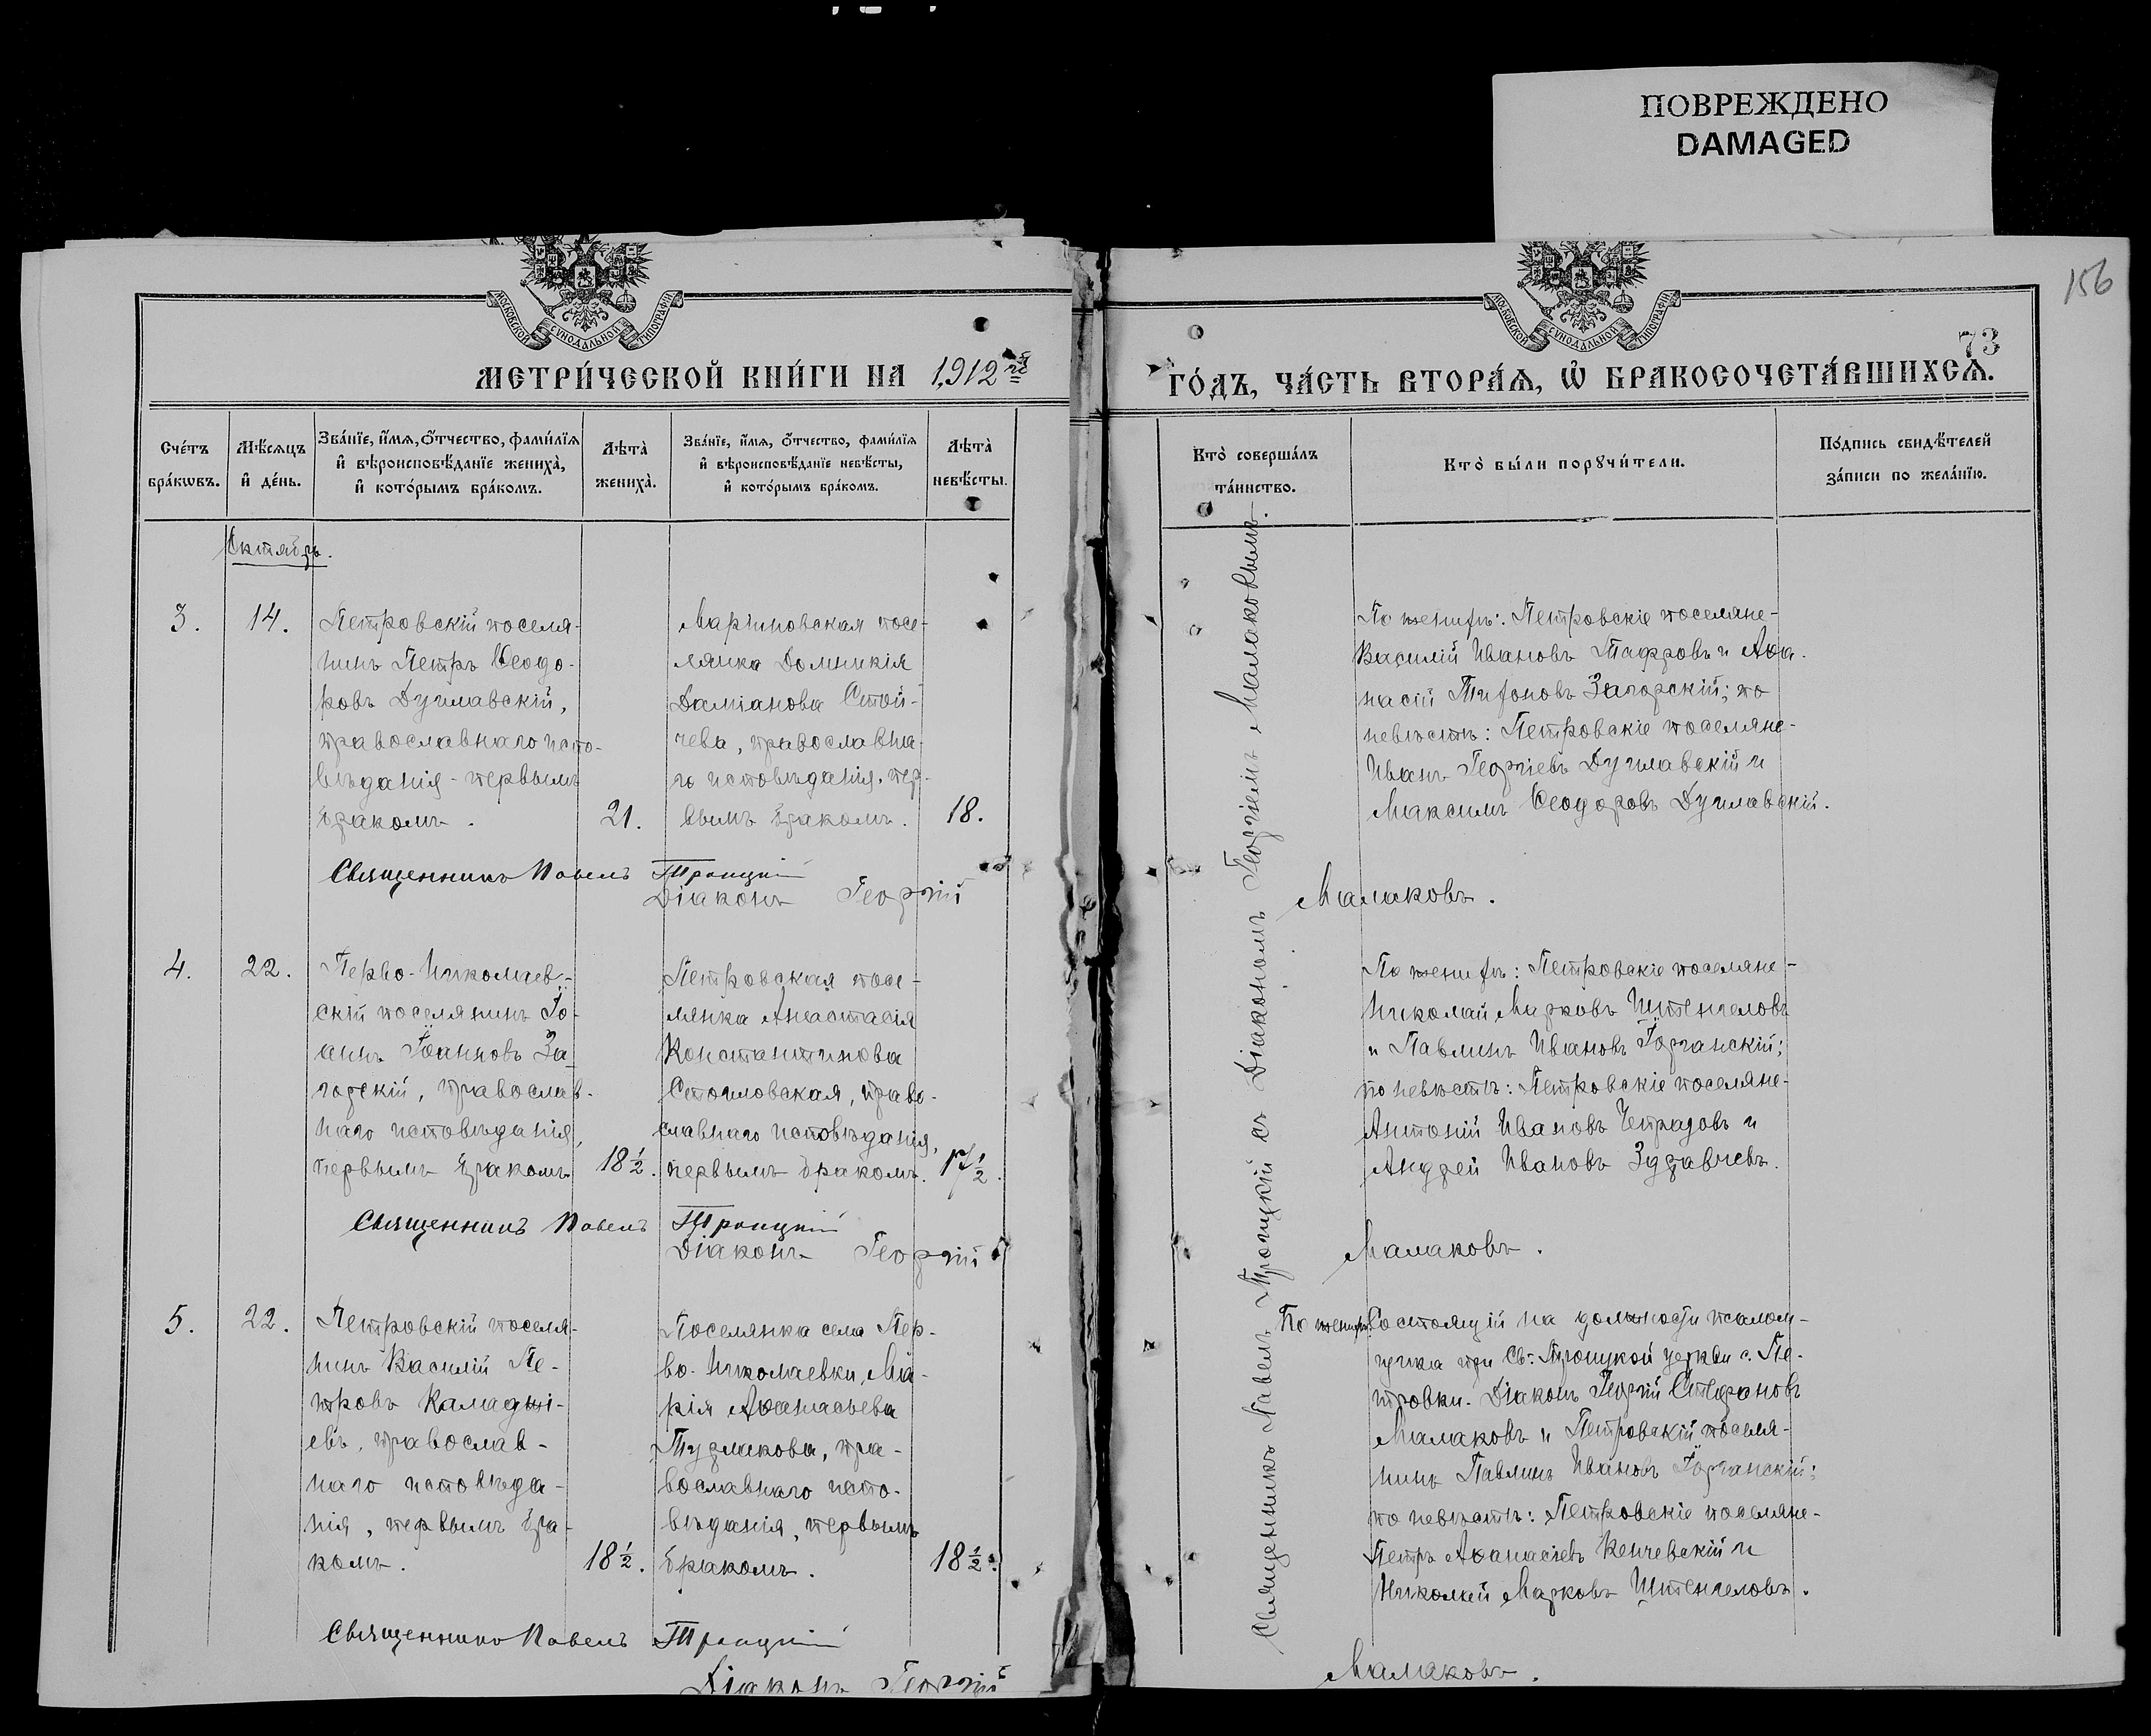 ПОВРЕЖДЕНО
DAMAGED
156
73
МОСКОВСКОЙ СѴНОДАЛЬНОЙ ТИПОГРАФІИ
МОСКОВСКОЙ СѴНОДАЛЬНОЙ ТИПОГРАФІИ
МЕТРИ́ЧЕСКОЙ КНИ́ГИ НА 1912 й
ГО́ДЪ, ЧА́СТЬ ВТОРА́Ѧ, Ѡ БРАКОСОЧЕТА́ВШИХСѦ.
Сче́тъ
бра́кѡвъ.
Мѣ́сѧцъ
и҆ де́нь.
Зва́нїе, и҆́мѧ, ѻ҆́тчество, фами́лїѧ
и҆ вѣроисповѣ́данїе жениха̀,
и҆ кото́рымъ бра́комъ.
Лѣта̀
жениха̀.
Зва́нїе, и҆́мѧ, ѻ҆́тчество, фами́лїѧ
и҆ вѣроисповѣ́данїе невѣ́сты,
и҆ кото́рымъ бра́комъ.
Лѣта̀
невѣ́сты.
Кто̀ соверша́лъ
та́инство.
Кто̀ бы́ли порꙋчи́тели.
По́дпись свидѣ́телей
за́писи по жела́нїю.
Октябрь.
3.
14.
Петровскій поселя-
нинъ Петръ Ѳеодо-
ровъ Дуглавскій,
православнаго испо-
вѣданія - первымъ
бракомъ.
21.
Маріиновская посе-
лянка Домникія
Даміанова Стой-
чева, православна-
го исповѣданія, пер-
вымъ бракомъ.
18.
По женихѣ: Петровскіе поселяне-
Василій Ивановъ и Аѳа-
насій Загорскій; по
невѣстѣ: Петровскіе поселяне-
Иванъ Георгіевъ Дуглавскій и
Максимъ Ѳеодоровъ Дуглавскій.
Священникъ Павелъ Троицкій
Діаконъ Георгій Малаковъ.
4.
22.
Перво-Николаев-
скій поселянинъ Іо-
аннъ Іоанновъ За-
горскій, православ-
наго исповѣданія,
первымъ бракомъ
18 1/2.
Петровская посе-
лянка Анастасія
Константинова
Стоиловская, право-
славнаго исповѣданія,
первымъ бракомъ.
17 1/2.
По женихѣ: Петровскіе поселяне-
Николай Марковъ Штенгеловъ
и Павлинъ Ивановъ Іорганскій;
по невѣстѣ: Петровскіе поселяне-
Антоній Ивановъ и
Андрей Ивановъ Здравчевъ.
Священникъ Павелъ Троицкій
Діаконъ Георгій Малаковъ.
5.
22.
Петровскій поселя-
нинъ Василій Пе-
тровъ Каладжі-
евъ, православ-
наго исповѣда-
нія, первымъ бра-
комъ.
18 1/2.
Поселянка села Пер-
во-Николаевки, Ма-
рія Аѳанасьева
Тудлакова, пра-
вославнаго испо-
вѣданія, первымъ
бракомъ.
18 1/2.
По женихѣ: Состоящій на должности псалом-
щика при Св: Троицкой церкви с. Пе-
тровки. Діаконъ Георгій Стефановъ
Малаковъ и Петровскій поселя-
нинъ Павлинъ Ивановъ Іорганскій;
по невѣстѣ: Петровскіе поселяне-
Петръ Аѳанасіевъ Кенчевскій и
Николай Марковъ Штенгеловъ.
Священникъ Павелъ Троицкій
Діаконъ Георгій Малаковъ.
Священникъ Павелъ Троицкій съ Діакономъ Георгіемъ Малаковымъ.